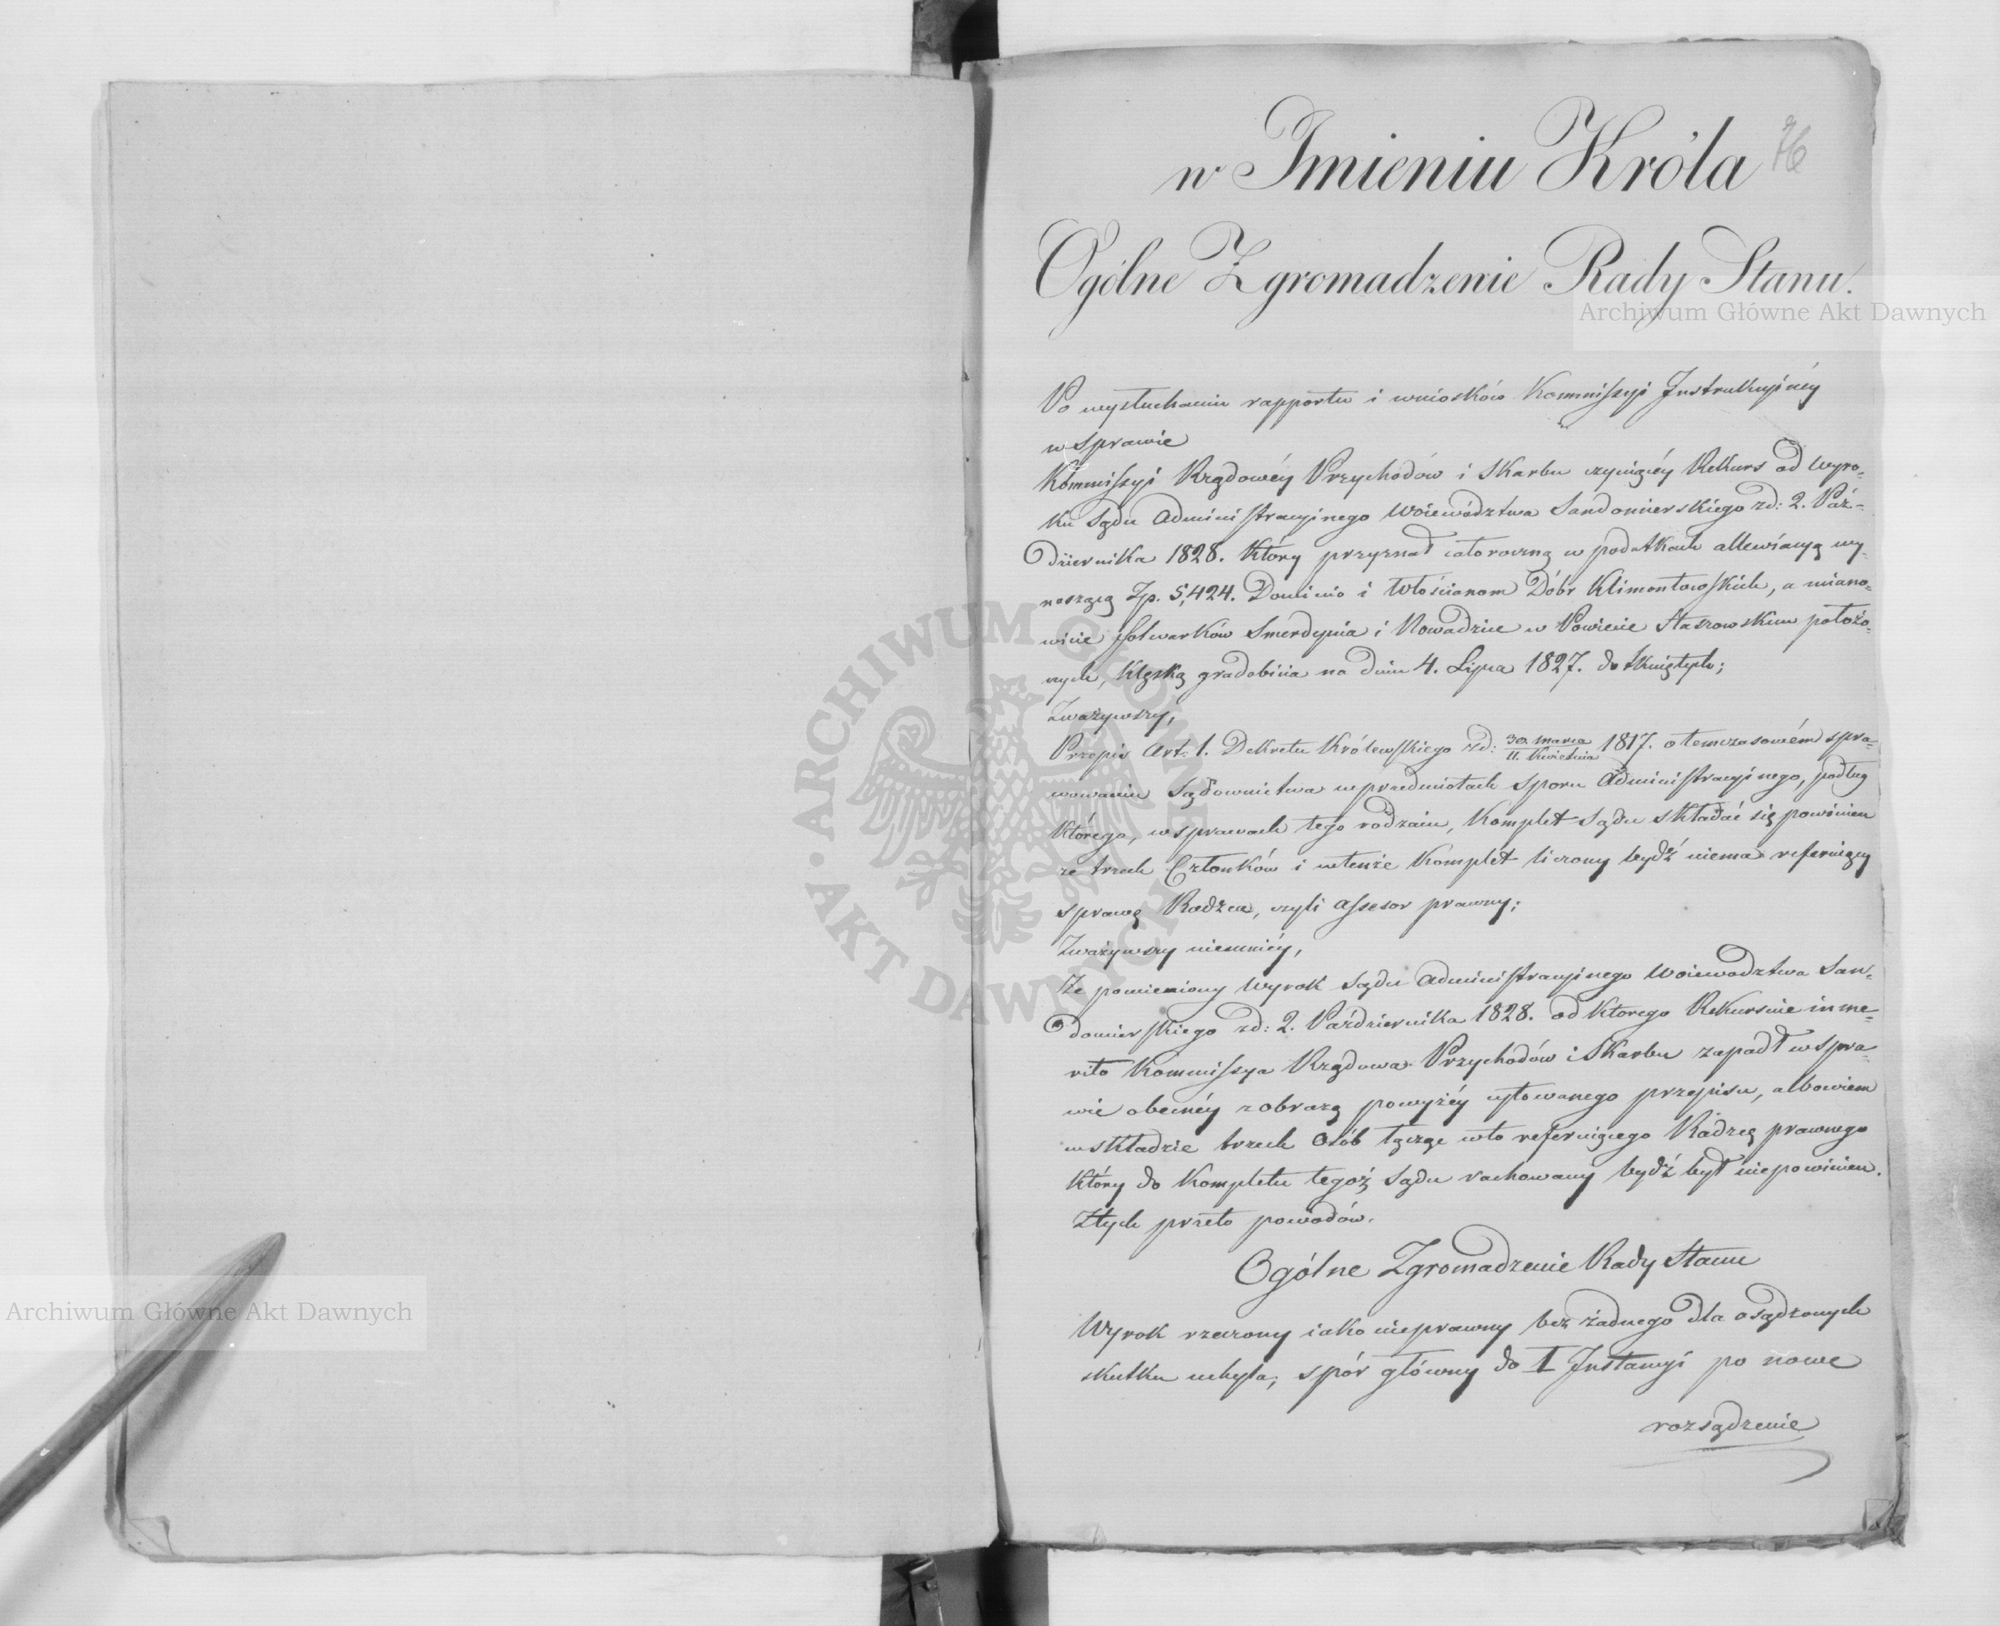 76
w Imieniu Króla
Ogólne Zgromadzenie Rady Stanu.
Archiwum Główne Akt Dawnych
Po wysłuchaniu rapportu i wniosków Kommissyi Instrukcyinéy
w sprawie
Kommissyi Rządowéy Przychodów i Skarbu czyniącéy Rekurs od Wyro-
ku Sądu Administracyinego Woiewództwa Sandomierskiego zd: 2. Paź-
dziernika 1828. który przyznał całoroczną w podatkach allewiacyą wy-
noszącą Zp. 5,424. Dominio i Włościanom Dóbr Klimontowskich, a miano-
wicie folwarków Smerdynia i Nowadzice w Powiecie Staszowskim położo-
nych, klęską gradobicia na dniu 4. Lipca 1827. dotkniętych;
Zważywszy,
Przepis Art: 1. Dekretu Królewskiego zd: 30 marca / 11. Kwietnia 1817. o temczasowém spra-
wowaniu Sądownictwa w przedmiotach sporu Administracyinego, podług
którego, w sprawach tego rodzaiu, Komplet Sądu składać się powinien
ze trzech Członków i w tenże Komplet liczony bydź niema referuiący
sprawę Radzca, czyli Assesor prawny;
Zważywszy niemniéy,
Że pomieniony Wyrok Sądu Administracyinego Woiewodztwa San-
domierskiego zd: 2. Października 1828. od którego Rekursuie in me-
rito Kommissya Rządowa Przychodów i Skarbu zapadł w spra-
wie obecnéy z obrazą powyżéy cytowanego przepisu, albowiem
w składzie trzech Osób łącząc w to referuiącego Radzcę prawnego
który do Kompletu tegoż Sądu rachowany bydź był niepowinien.
Z tych przeto powodów.
Ogólne Zgromadzenie Rady Stanu
Wyrok rzeczony iako nieprawny bez żadnego dla osądzonych
skutku uchyla, spór główny do I Instancyi po nowe
rozsądzenie
ARCHIWUM GŁÓWNE AKT DAWNYCH
Archiwum Główne Akt Dawnych